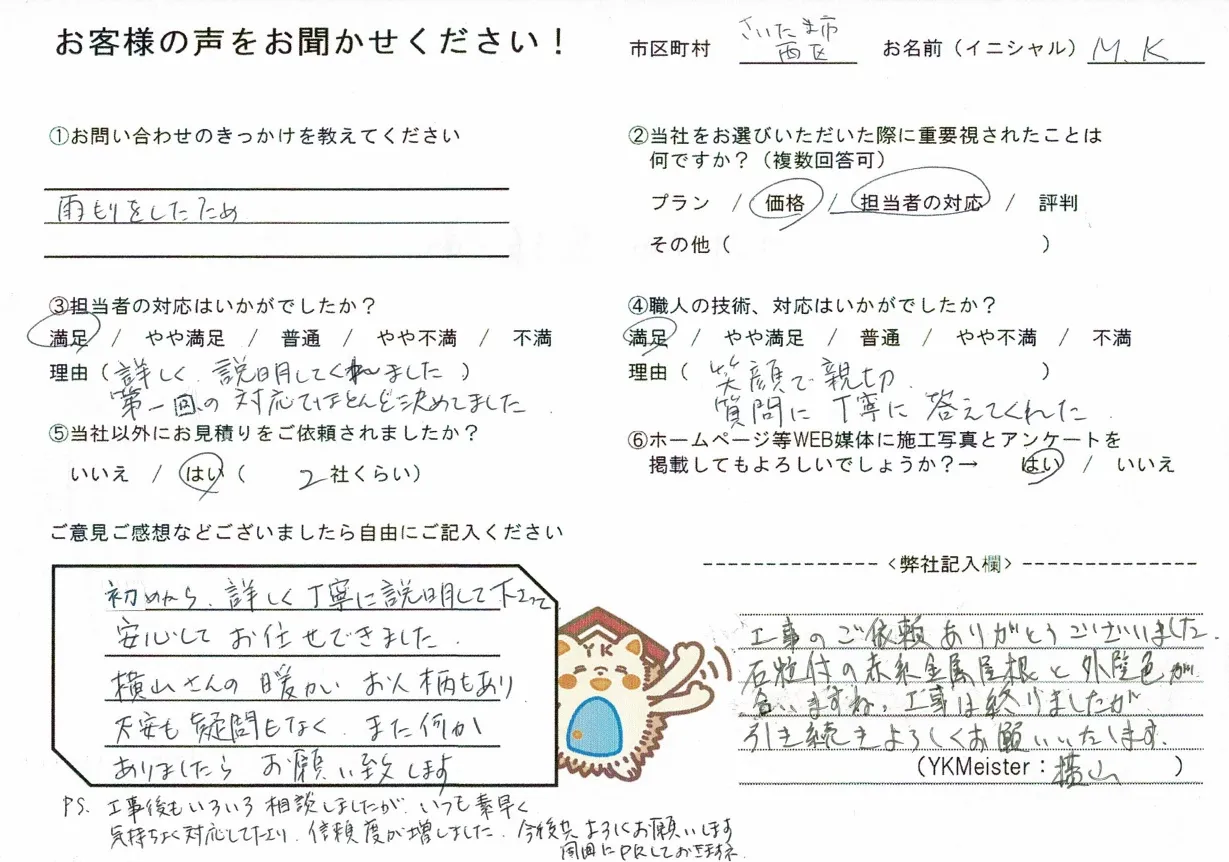 お客様の声をお聞かせください！
市区町村 さいたま市
西区
お名前（イニシャル） M.K
①お問い合わせのきっかけを教えてください
雨もりをしたため
②当社をお選びいただいた際に重要視されたことは
何ですか？（複数回答可）
プラン / 価格 / 担当者の対応 / 評判
その他（ ）
③担当者の対応はいかがでしたか？
満足 / やや満足 / 普通 / やや不満 / 不満
理由（詳しく、説明してくれました ）
第一回の対応でほとんど決めてました
④職人の技術、対応はいかがでしたか？
満足 / やや満足 / 普通 / やや不満 / 不満
理由（ 笑顔で親切、 ）
質問に丁寧に答えてくれた
⑤当社以外にお見積りをご依頼されましたか？
いいえ / はい（ 2 社くらい）
⑥ホームページ等WEB媒体に施工写真とアンケートを
掲載してもよろしいでしょうか？→ はい / いいえ
ご意見ご感想などございましたら自由にご記入ください
初めから、詳しく丁寧に説明して下さって
安心してお任せできました.
横山さんの暖かいお人柄もあり
不安も疑問もなく、また何か
ありましたら お願い致します
PS. 工事後もいろいろ相談しましたが、いつも素早く
気持ちよく対応して下さり、信頼度が増しました. 今後共よろしくお願いします
周囲にPRしておきますネ.
YK
<弊社記入欄>
工事のご依頼ありがとうございました.
石粒付の赤系金属屋根と外壁色が
合いますね。工事は終りましたが
引き続きよろしくお願いいたします.
（YKMeister：横山 ）